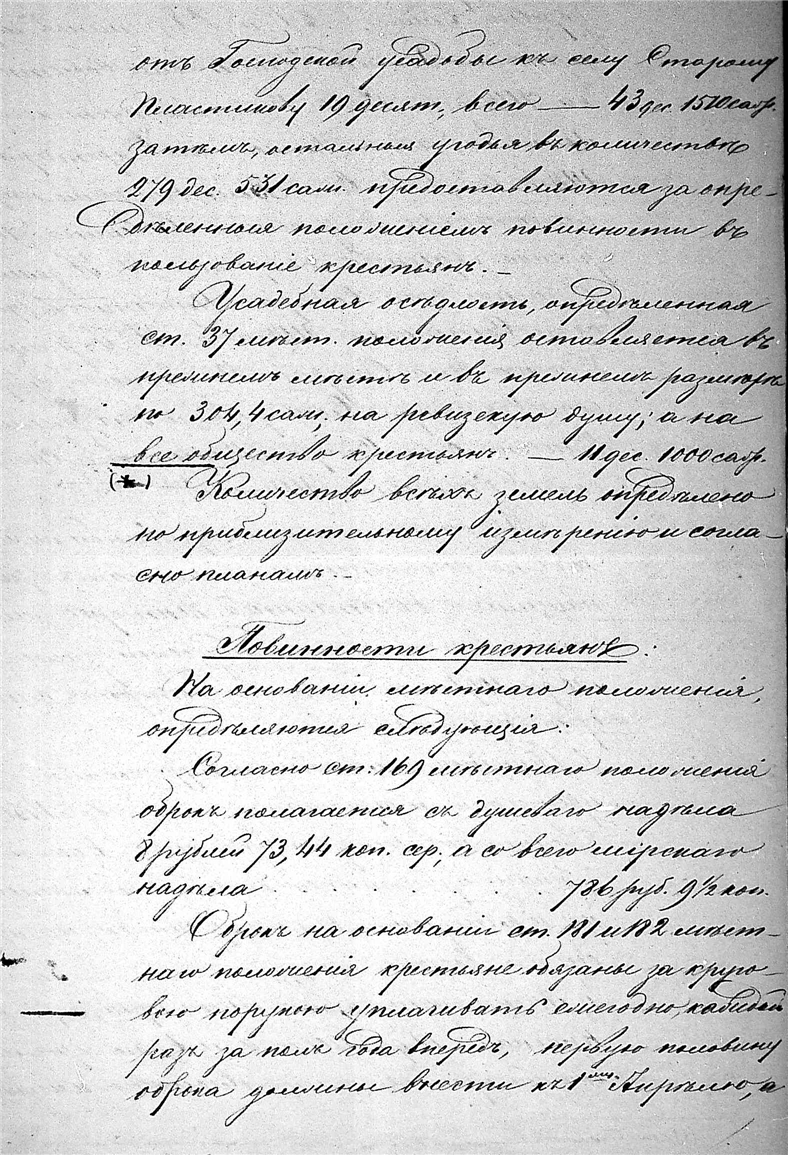 отъ Господской усадьбы къ селу Старому
Пластикову 19 десят., всего — 43 дес. 1510 саж.
затѣмъ, остальныя угодья въ количествѣ
279 дес. 531 саж. предоставляются за опре-
дѣленныя положеніемъ повинности въ
пользованіе крестьянъ. –
Усадебная осѣдлость, опредѣленная
ст. 37 мѣст. положенія оставляется въ
прежнемъ мѣстѣ и въ прежнемъ размѣрѣ
по 304,4 саж., на ревизскую душу; а на
все общество крестьянъ. — 11 дес. 1000 саж.
(*)
Количество всѣхъ земель опредѣлено
по приблизительному измѣренію и согла-
сно планамъ. –
Повинности крестьянъ:
На основаніи мѣстнаго положенія,
опредѣляются слѣдующія:
Согласно ст: 169 мѣстнаго положенія
оброкъ полагается съ душеваго надѣла
8 рублей 73,44 коп. сер., а со всего мірскаго
надѣла . . . . . 786 руб. 9 1/2 коп.
Оброкъ на основаніи ст. 181 и 182 мѣст-
наго положенія крестьяне обязаны за круго-
вою порукою уплачивать ежегодно, каждый
разъ за полъ года впередъ, первую половину
оброка должны внести къ 1му Апрѣлю, а